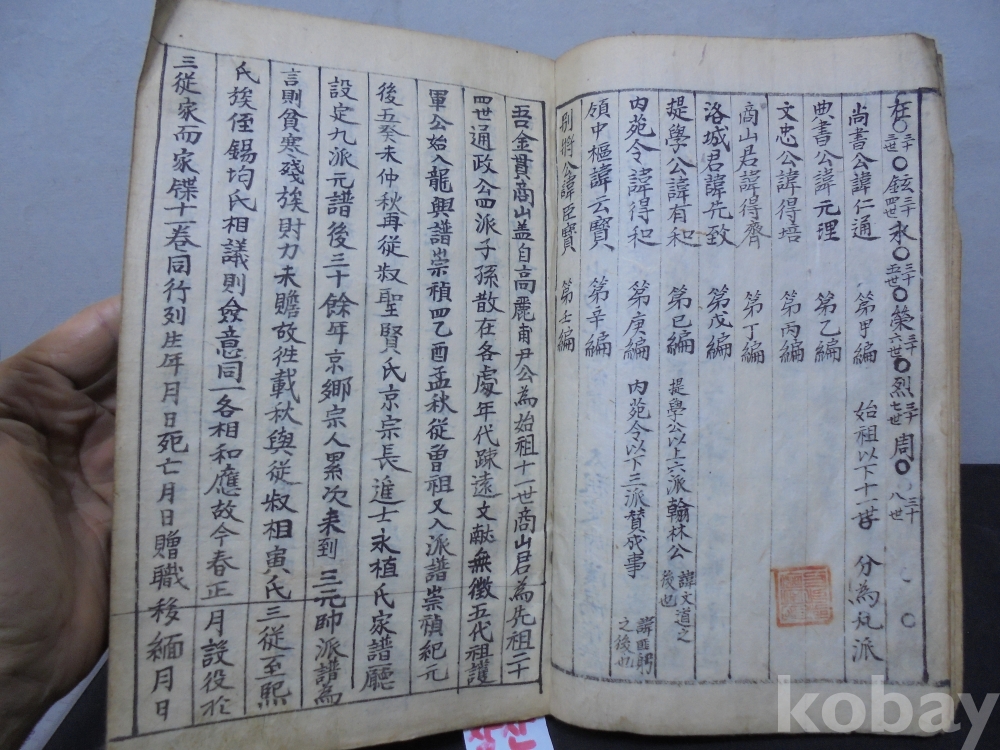 在○三十三世○鉉三十四世永○三十五世○榮三十六世○烈三十七世周○三十八世○
尚書公諱仁通 第甲編 始祖以下十一世 分為九派
典書公諱元理 第乙編
文忠公諱得培 第丙編
商山君諱得齊 第丁編
洛城君諱先致 第戊編
提學公諱有和 第巳編 提學公以上六派翰林公諱文道之後也
內苑令諱得和 第庚編 內苑令以下三派贊成事諱匪躬之後也
領中樞諱云寶 第辛編
別將公諱臣寶 第壬編
吾金貫商山盖自高麗甫尹公為始祖十一世商山君為先祖二十
四世通政公四派子孫散在各處年代踈遠文献無徵五代祖護
軍公始入龍興譜崇禎四乙酉孟秋從曾祖又入派譜崇禎紀元
後五癸未仲秋再從叔聖賢氏京宗長進士永植氏家譜廳
設定九派元譜後三十餘年京鄉宗人累次来到三元帥派譜為
言則貧寒殘族財力未贍故徃載秋與從叔相寅氏三從至熙
氏族侄錫均氏相議則僉意同一各相和應故今春正月設役於
三從家而家牒十一卷同行列生年月日死亡月日贈職移緬月日
kobay